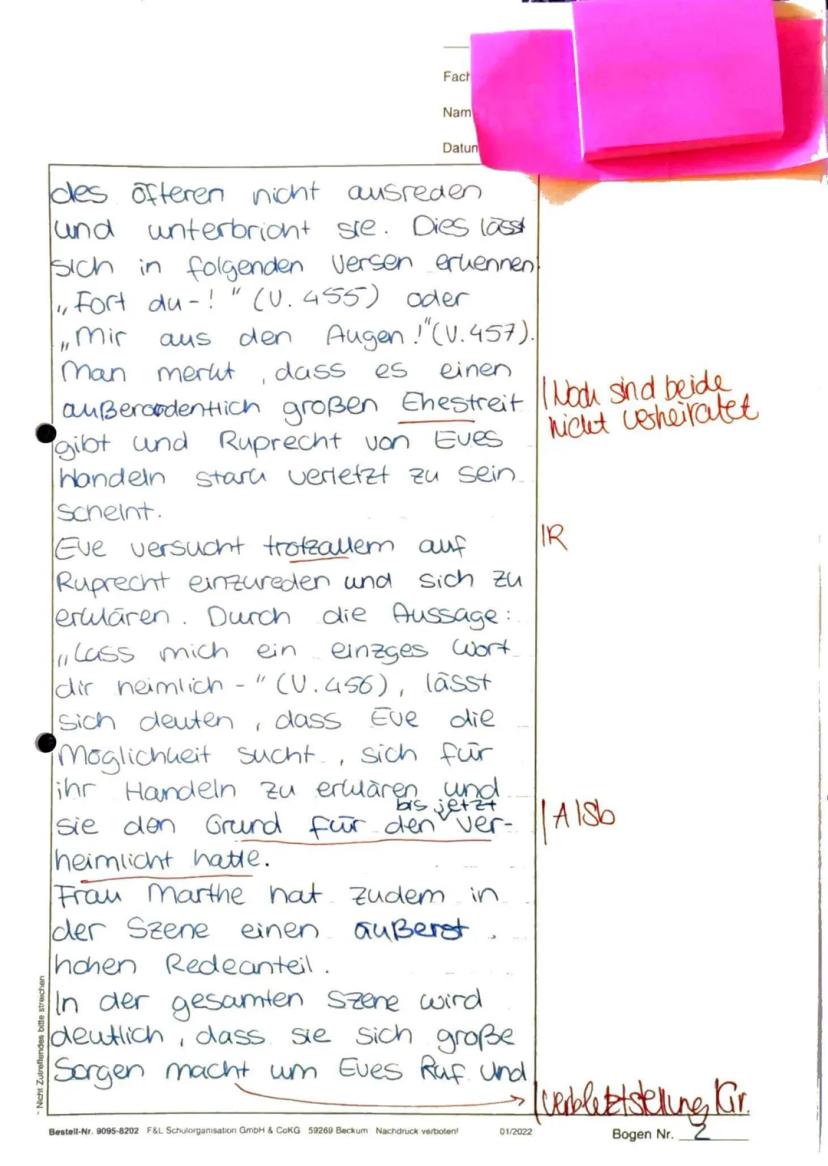 Fach
Nam
Datum
des öfteren nicht ausreden
und unterbricht sie. Dies lässt
sich in folgenden Versen erkennen
„Fort du-!" (V. 455) oder
„Mir aus den Augen!"(V.457).
Man merkt, dass es einen
außeroodentlich großen Ehestreit
gibt und Ruprecht von Eves
Handeln stark verletzt zu sein
scheint.
Eve versucht trotzallem auf
Ruprecht einzureden und sich zu
erklären. Durch die Aussage:
„Lass mich ein einzges Wort
dir heimlich -" (V. 456), lässt
sich deuten, dass Eve die
Möglichkeit sucht, sich für
ihr Handeln zu erklären und
bis jetzt
sie den Grund für den ver-
heimlicht hatte.
Frau Marthe hat zudem in
der Szene einen äußerst
hohen Redeanteil.
In der gesamten Szene wird
deutlich, dass sie sich große
Sorgen macht um Eves Ruf und
Noch sind beide
nicht verheiratet
R
A/Sb
Verbletztstellung, Gr.
* Nicht Zutreffendes bitte streichen
Bestell-Nr. 9095-8202 F&L Schulorganisation GmbH & CoKG 59269 Beckum Nachdruck verboten! 01/2022
Bogen Nr. 2